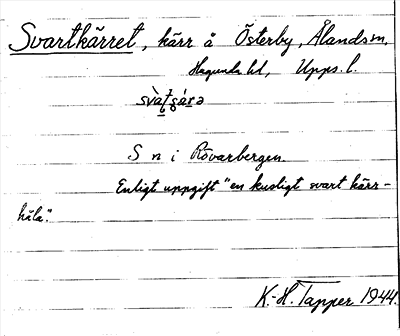 Svartkärret, kärr å Österby, Ålands sn,
Hagunda hd, Upps. l.
S n i Rövarbergen.
Enligt uppgift "en kusligt svart kärr-
håla".
K.-H. Tapper 1944.